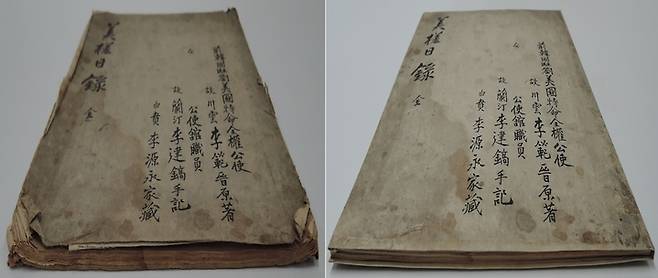 美槎日錄
全
前韓國駐劄美國特命全權公使
故 川雲 李範晉原著
公使館職員
故 蘭汀 李建鎬手記
白賁 李源永家藏
美槎日錄
全
前韓國駐劄美國特命全權公使
故 川雲 李範晉原著
公使館職員
故 蘭汀 李建鎬手記
白賁 李源永家藏